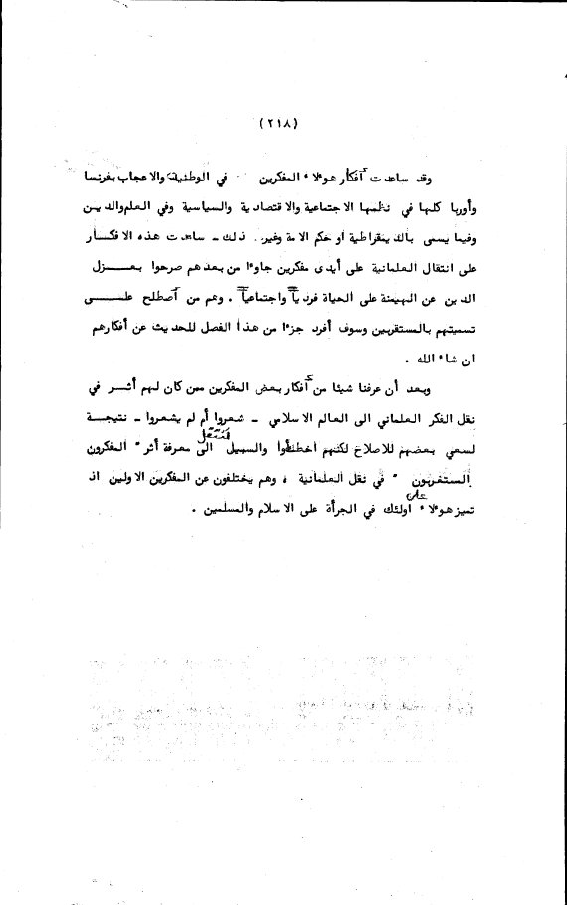 (٢١٨)
وقد ساعدت أفكار هؤلاء المفكرين في الوطنية والاعجاب بفرنسا
وأوربا كلها في نظمها الاجتماعية والاقتصادية والسياسية وفي العلم والديـن
وفيما يسمى بالديمقراطية أو حكم الامة وغير ذلك ـ ساعدت هذه الافكــار
على انتقال العلمانية على أيدى مفكرين جاوءا من بعدهم صرحوا بعــزل
الدين عن الهيمنة على الحياة فردياً واجتماعياً . وهم من أصطلح علــــى
تسميتهم بالمستغربين وسوف أفرد جزءا من هذا الفصل للحديث عن أفكارهم
ان شاء الله .
وبعد أن عرفنا شيئا من أفكار بعض المفكرين ممن كان لهم أثـــر في
نقل الفكر العلماني الى العالم الاسلامي ـ شعروا أم لم يشعروا ـ نتيجـــة
لسعي بعضهم للاصلاح لكنهم أخطئوا والسبيل فننتقل الى معرفة أثر " المفكرون
المستغربون " في نقل العلمانية ، وهم يختلفون عن المفكرين الاولين اذ
تميز هؤلاء على اولئك في الجرأة على الاسلام والمسلمين .